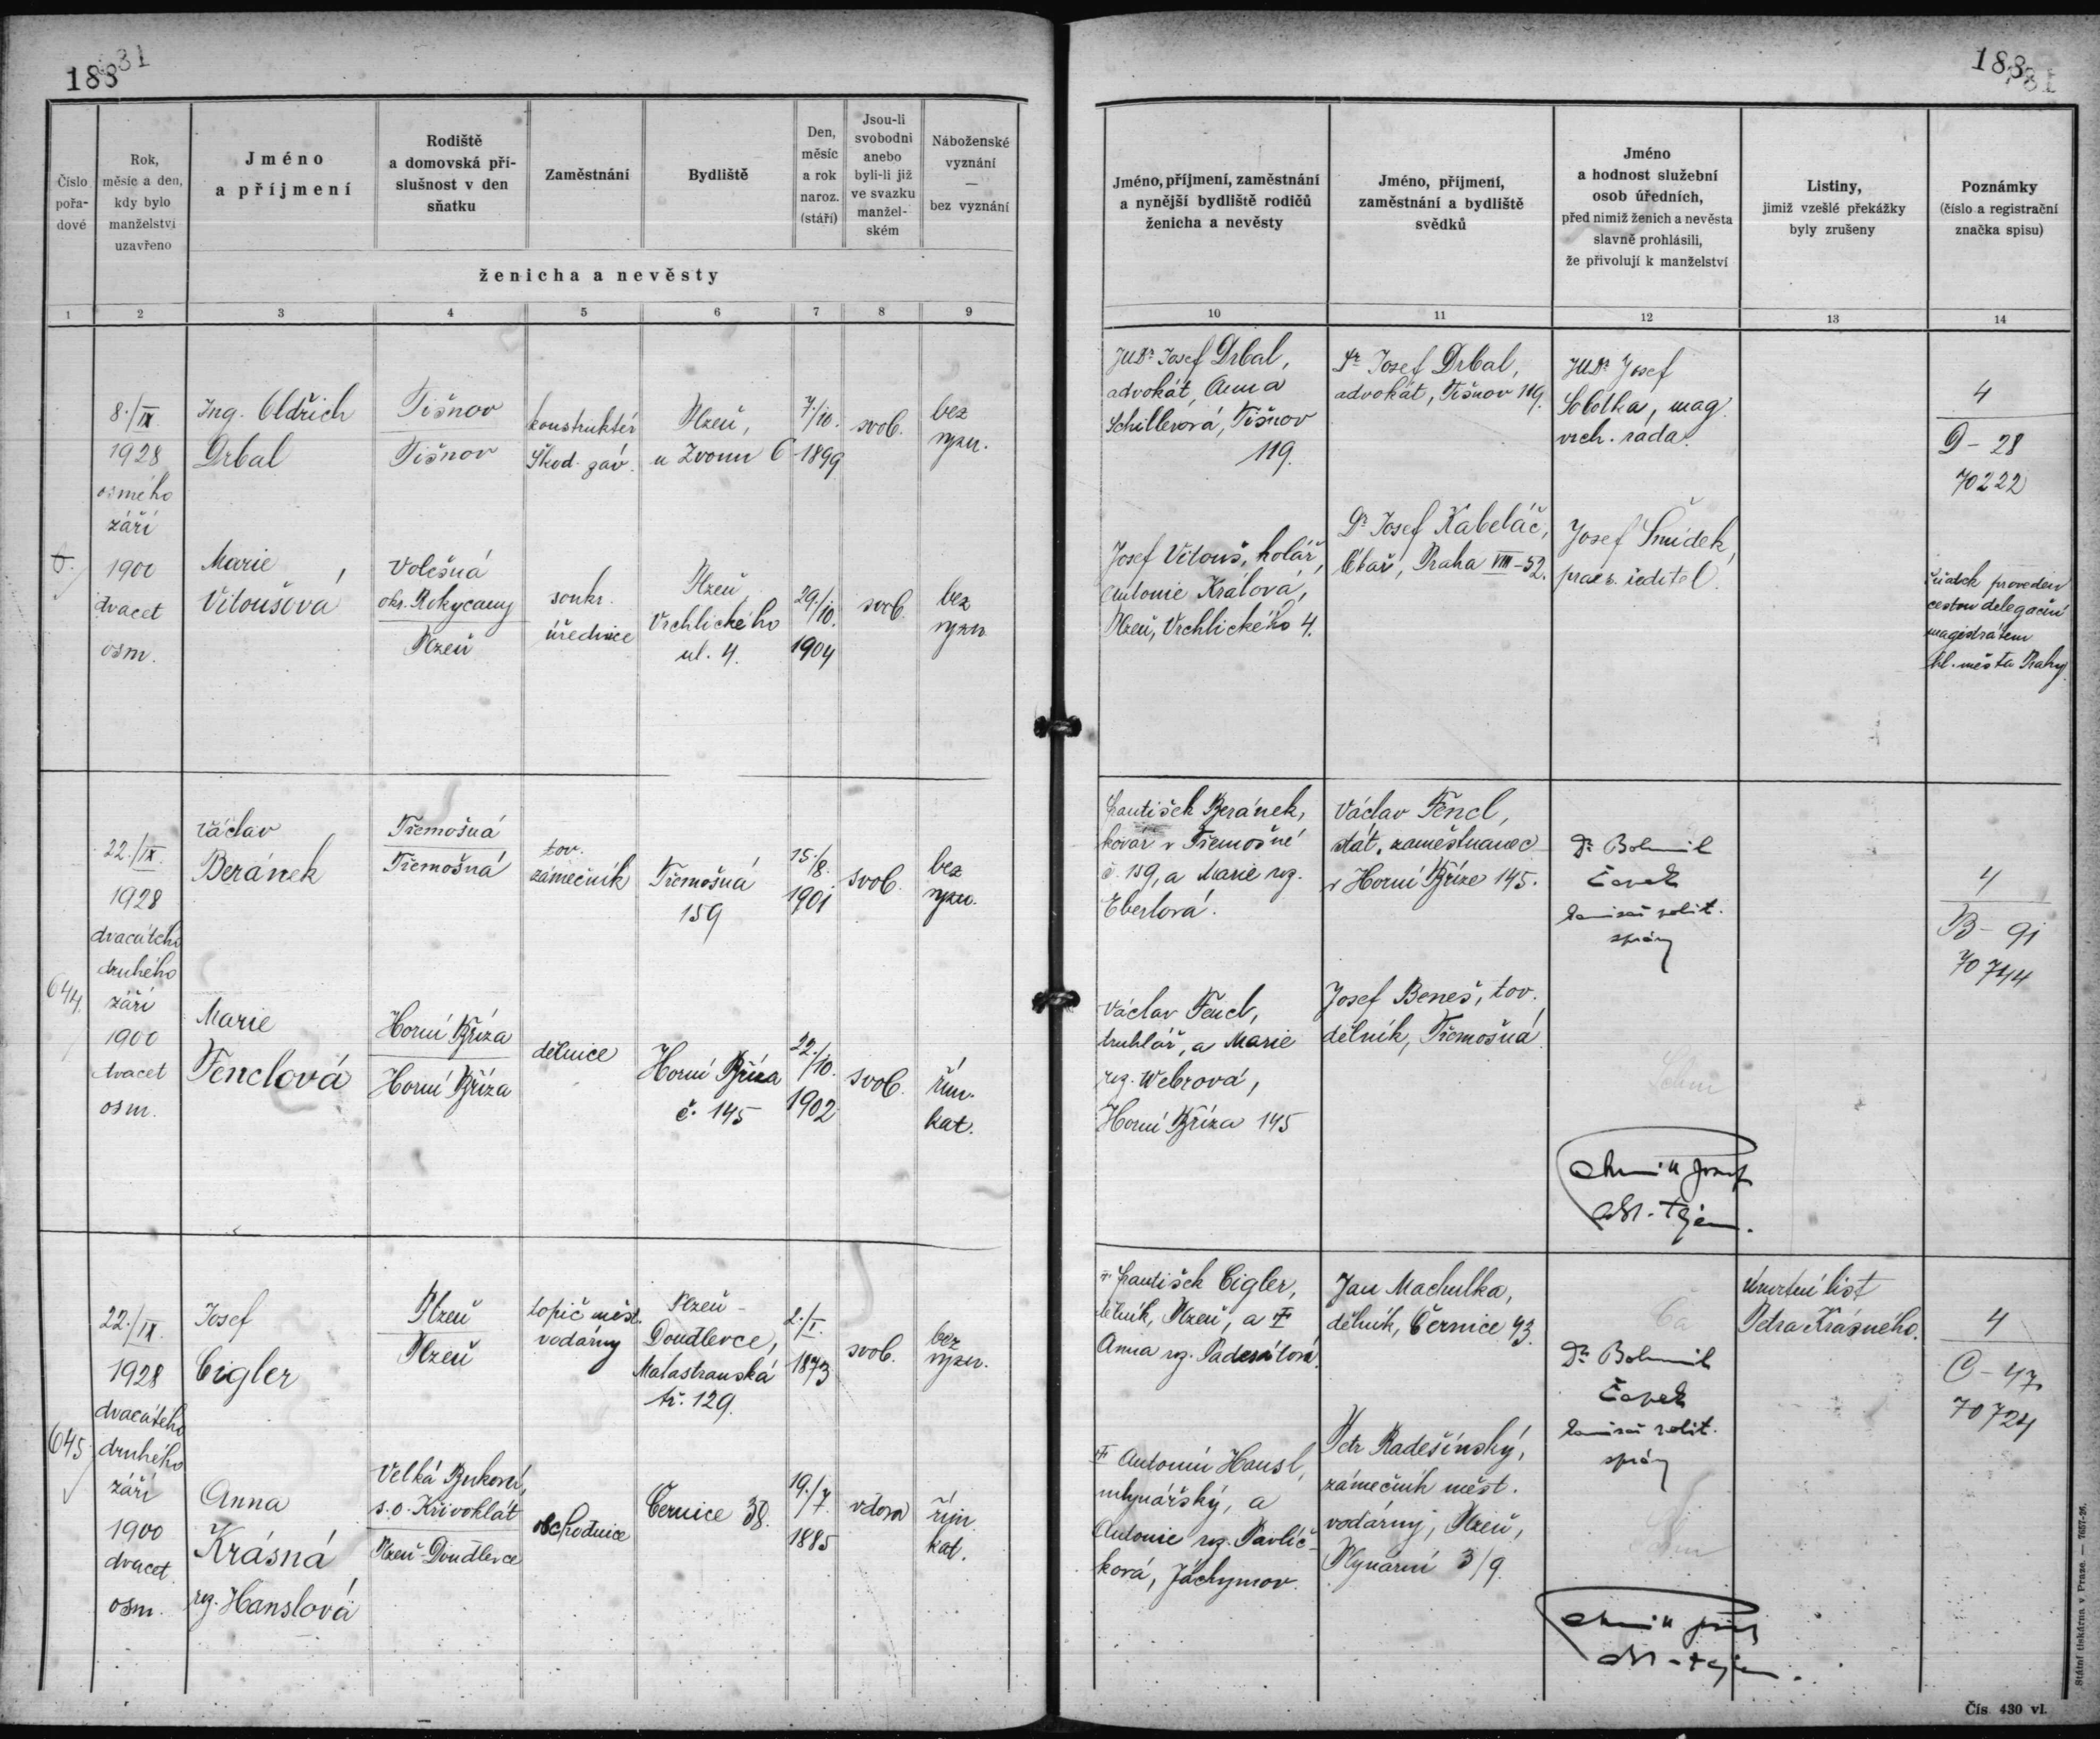 188
31
188
31
Číslo
pořa-
dové
Rok,
měsíc a den,
kdy bylo
manželství
uzavřeno
Jméno
a příjmení
Rodiště
a domovská pří-
slušnost v den
sňatku
Zaměstnání
Bydliště
Den,
měsíc
a rok
naroz.
(stáří)
Jsou-li
svobodni
anebo
byli-li již
ve svazku
manžel-
ském
Náboženské
vyznání
—
bez vyznání
ženicha a nevěsty
1 2 3 4 5 6 7 8 9
Jméno, příjmení, zaměstnání
a nynější bydliště rodičů
ženicha a nevěsty
Jméno, příjmení,
zaměstnání a bydliště
svědků
Jméno
a hodnost služební
osob úředních,
před nimiž ženich a nevěsta
slavně prohlásili,
že přivolují k manželství
Listiny,
jimiž vzešlé překážky
byly zrušeny
Poznámky
(číslo a registrační
značka spisu)
10 11 12 13 14
8./IX.
1928
osmého
září
1900
dvacet
osm.
Ing. Oldřich
Drbal
Tišnov
Tišnov
konstruktér
Škod. záv.
Plzeň,
u Zvonu 6
7./10.
1899
svob.
bez
vyzn.
JUDr Josef Drbal,
advokát, Anna
Schillerová, Tišnov
119.
Dr Josef Drbal,
advokát, Tišnov 119.
JUDr Josef
Sobotka, mag.
vrch. rada.
4
D - 28
70222
Marie
Vitoušová
Volešná
okr. Rokycany
Plzeň
soukr.
úřednice
Plzeň
Vrchlického
ul. 4.
29./10.
1904
svob.
bez
vyzn.
Josef Vitouš, kolář,
Antonie Králová,
Plzeň, Vrchlického 4.
Dr Josef Kabeláč,
Praha VIII-52.
Josef Šmídek,
ředitel.
Sňatek proveden
cestou delegační
magistrátem
hl. města Prahy.
644.
22./IX.
1928
dvacátého
druhého
září
1900
dvacet
osm.
Václav
Beránek
Třemošná
Třemošná
tov.
zámečník
Třemošná
159
15./8.
1901
svob.
bez
vyzn.
František Beránek,
kovář v Třemošné
č. 159, a Marie roz.
Eberlová.
Václav Fencl,
stát. zaměstnanec
v Horní Bříze 145.
Dr Bohumil
Čapek
komisař polit.
správy
4
B - 91
70744
Marie
Fenclová
Horní Bříza
Horní Bříza
dělnice
Horní Bříza
č. 145
22./10.
1902
svob.
řím.
kat.
Václav Fencl,
truhlář, a Marie
roz. Webrová,
Horní Bříza 145
Josef Beneš, tov.
dělník, Třemošná
645
22./IX.
1928
dvacátého
druhého
září
1900
dvacet
osm.
Josef
Cigler
Plzeň
Plzeň
topič měst.
vodárny
Plzeň -
Doudlevce,
Malostranská
tř. 129.
2./I.
1873
svob.
bez
vyzn.
† František Cigler,
dělník, Plzeň, a †
Anna roz. Padesátová.
Jan Machulka,
dělník, Černice 43.
Dr Bohumil
Čapek
komisař polit.
správy
Úmrtní list
Petra Krásného.
4
C - 47
70724
Anna
Krásná
roz. Hanslová
Velká Buková,
s.o. Křivoklát
Plzeň-Doudlevce
obchodnice
Černice 38.
19./7.
1885
vdova
řím.
kat.
† Antonín Hansl,
mlynářský, a
Antonie roz. Pavlíč-
ková, Jáchymov.
Petr Radešínský,
zámečník měst.
vodárny, Plzeň,
Plynární 3/9.
Státní tiskárna v Praze. — 7657-26.
Čís. 430 vl.